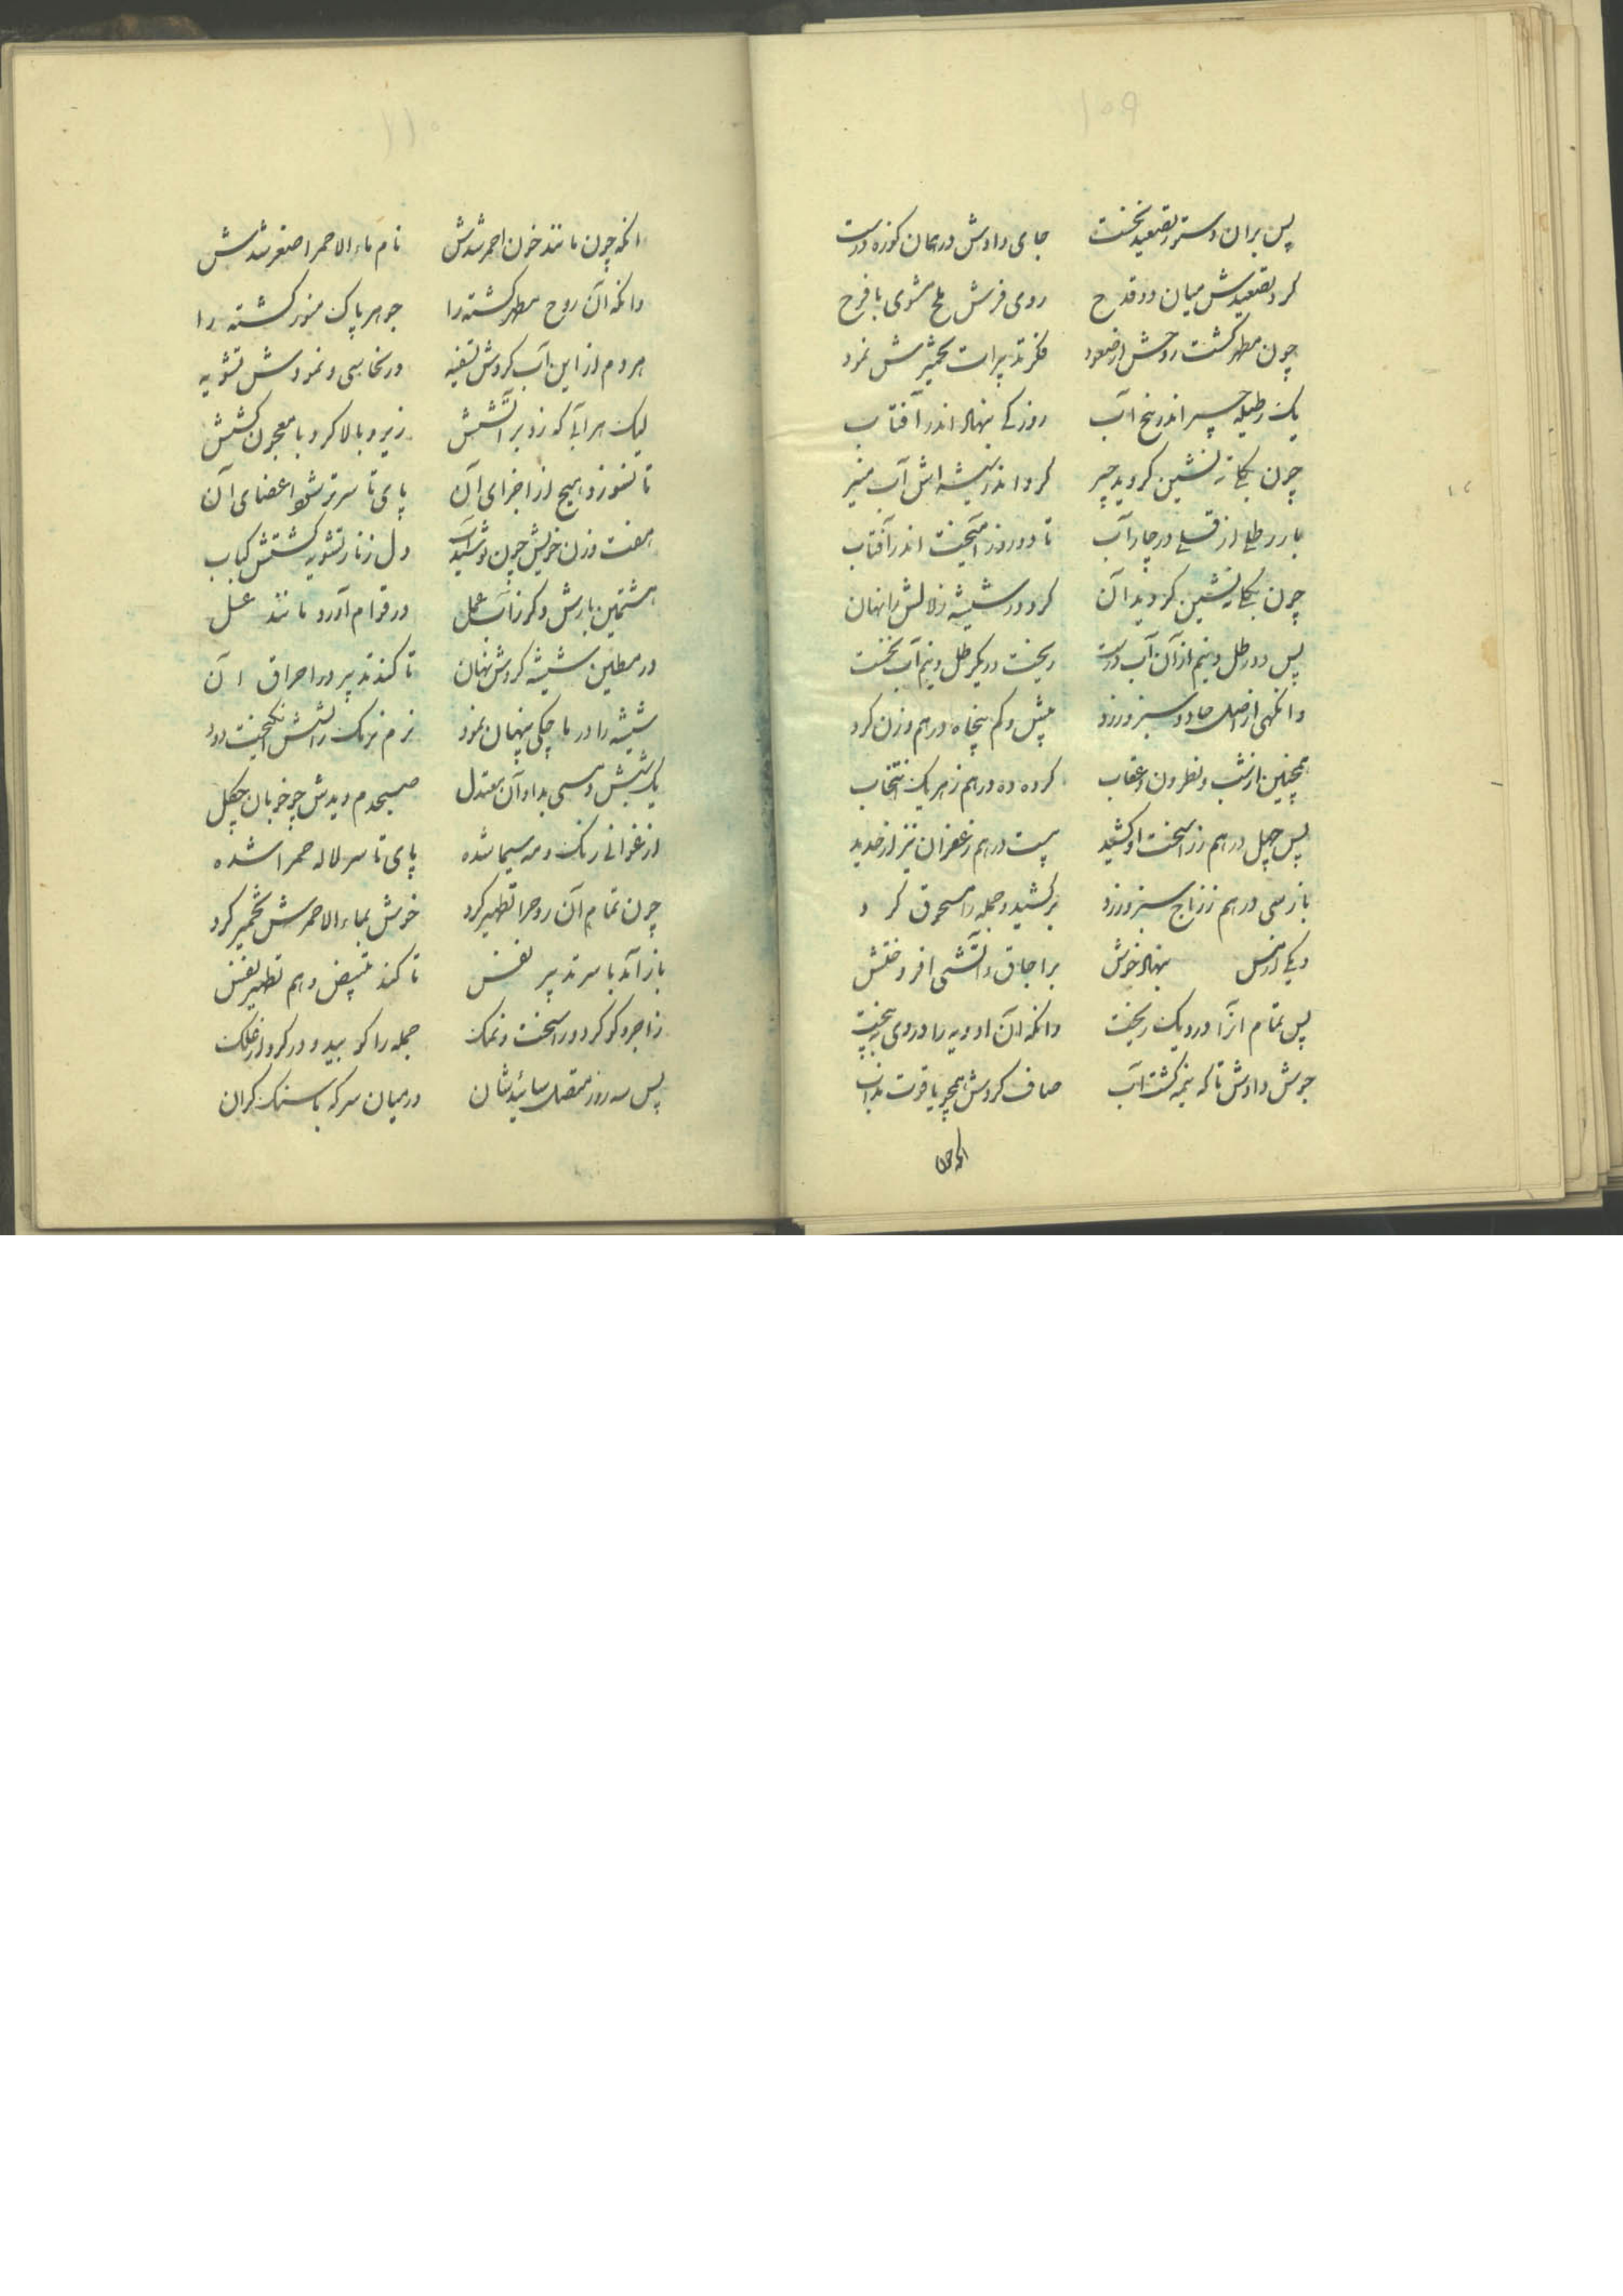 ۱۰۹
پس بران دستر تصعید نخست جای دادش در همان کوزه درست
کرد تصعیدش میان دو قدح روی فرش ملح مشوی با فرح
چون مطهر کشت روحش از صعود فکر تدبیرات تخمیرش نمود
یک رطیله جیر اندر پنج آب روز کی بنهاد اندر آفتاب
چون بکا ته نشین کردید جیر کرد اندر شیشه اش آب منیر
بار رطلی از قلی در چار آب تا دو روز آمیخت اندر آفتاب
چون بکا ته نشین کردید آن کرد در شیشه زلالش را نهان
پس دو رطل و نیم از آن آب درست ریخت در یکرطل و نیم آب نخست
وانکهی از اصل حاد و سبز و زرد بیش و کم پنجاه درهم وزن کرد
همچنین از شب و نطرون و عقاب کرده ده درهم ز هر یک انتخاب
پس چهل درهم ز راسخت او کشید بیست درهم زعفران نیز از حدید
باز سی درهم ز زاج سبز و زرد برکشید و جمله را مسحوق کرد
دیکی از مس بنهاد خوش بر اجاق و آتشی افروختش
پس تمام آنرا در دیک ریخت وانکه آن ادویه را در وی ببیخت
جوش دادش تا که نیمه کشت آب صاف کردش همچو یاقوت مذاب
انکه چون
۱۱۰
انکه چون مانند خون احمر شدش نام ماء الاحمر اصغر شدش
وانکه آن روح مطهر کشته را جوهر پاک منور کشته را
هر دم از این آب کردش تسقیه در نخاسی و نمودش تشویه
لیک هر آبی که زد بر آتشش زیر و بالا کرد با معجون کشش
تا نسوزد هیچ از اجزای آن پای تا سر تر شود اعضای آن
هفت وزن خویش چون نوشید آب دل ز نار تشویه کشتش کباب
هشتمین بارش دکر زآب عمل در قوام آورد مانند عسل
در مطین شیشه کردش نهان تا کند تدبیر در احراق آن
شیشه را در ماچکی پنهان نمود نرم نرمک زآتشش انکیخت دود
یک شبش دمی بداد آن معتدل صبحدم دیدش چو خوبان چکل
ارغوانی رنک و مه سیما شده پای تا سر لاله حمرا شده
چون تمام آن روح را تطهیر کرد خوش بماء الاحمرش تخمیر کرد
باز آمد با سر تدبیر نفس تا کند تبییض و هم تطهیر نفس
زاجر و کوکرد و راسخت و نمک جمله را کوبید و در کرد از
پس سه روز متصل سائیدشان در میان سرکه با سنک کران